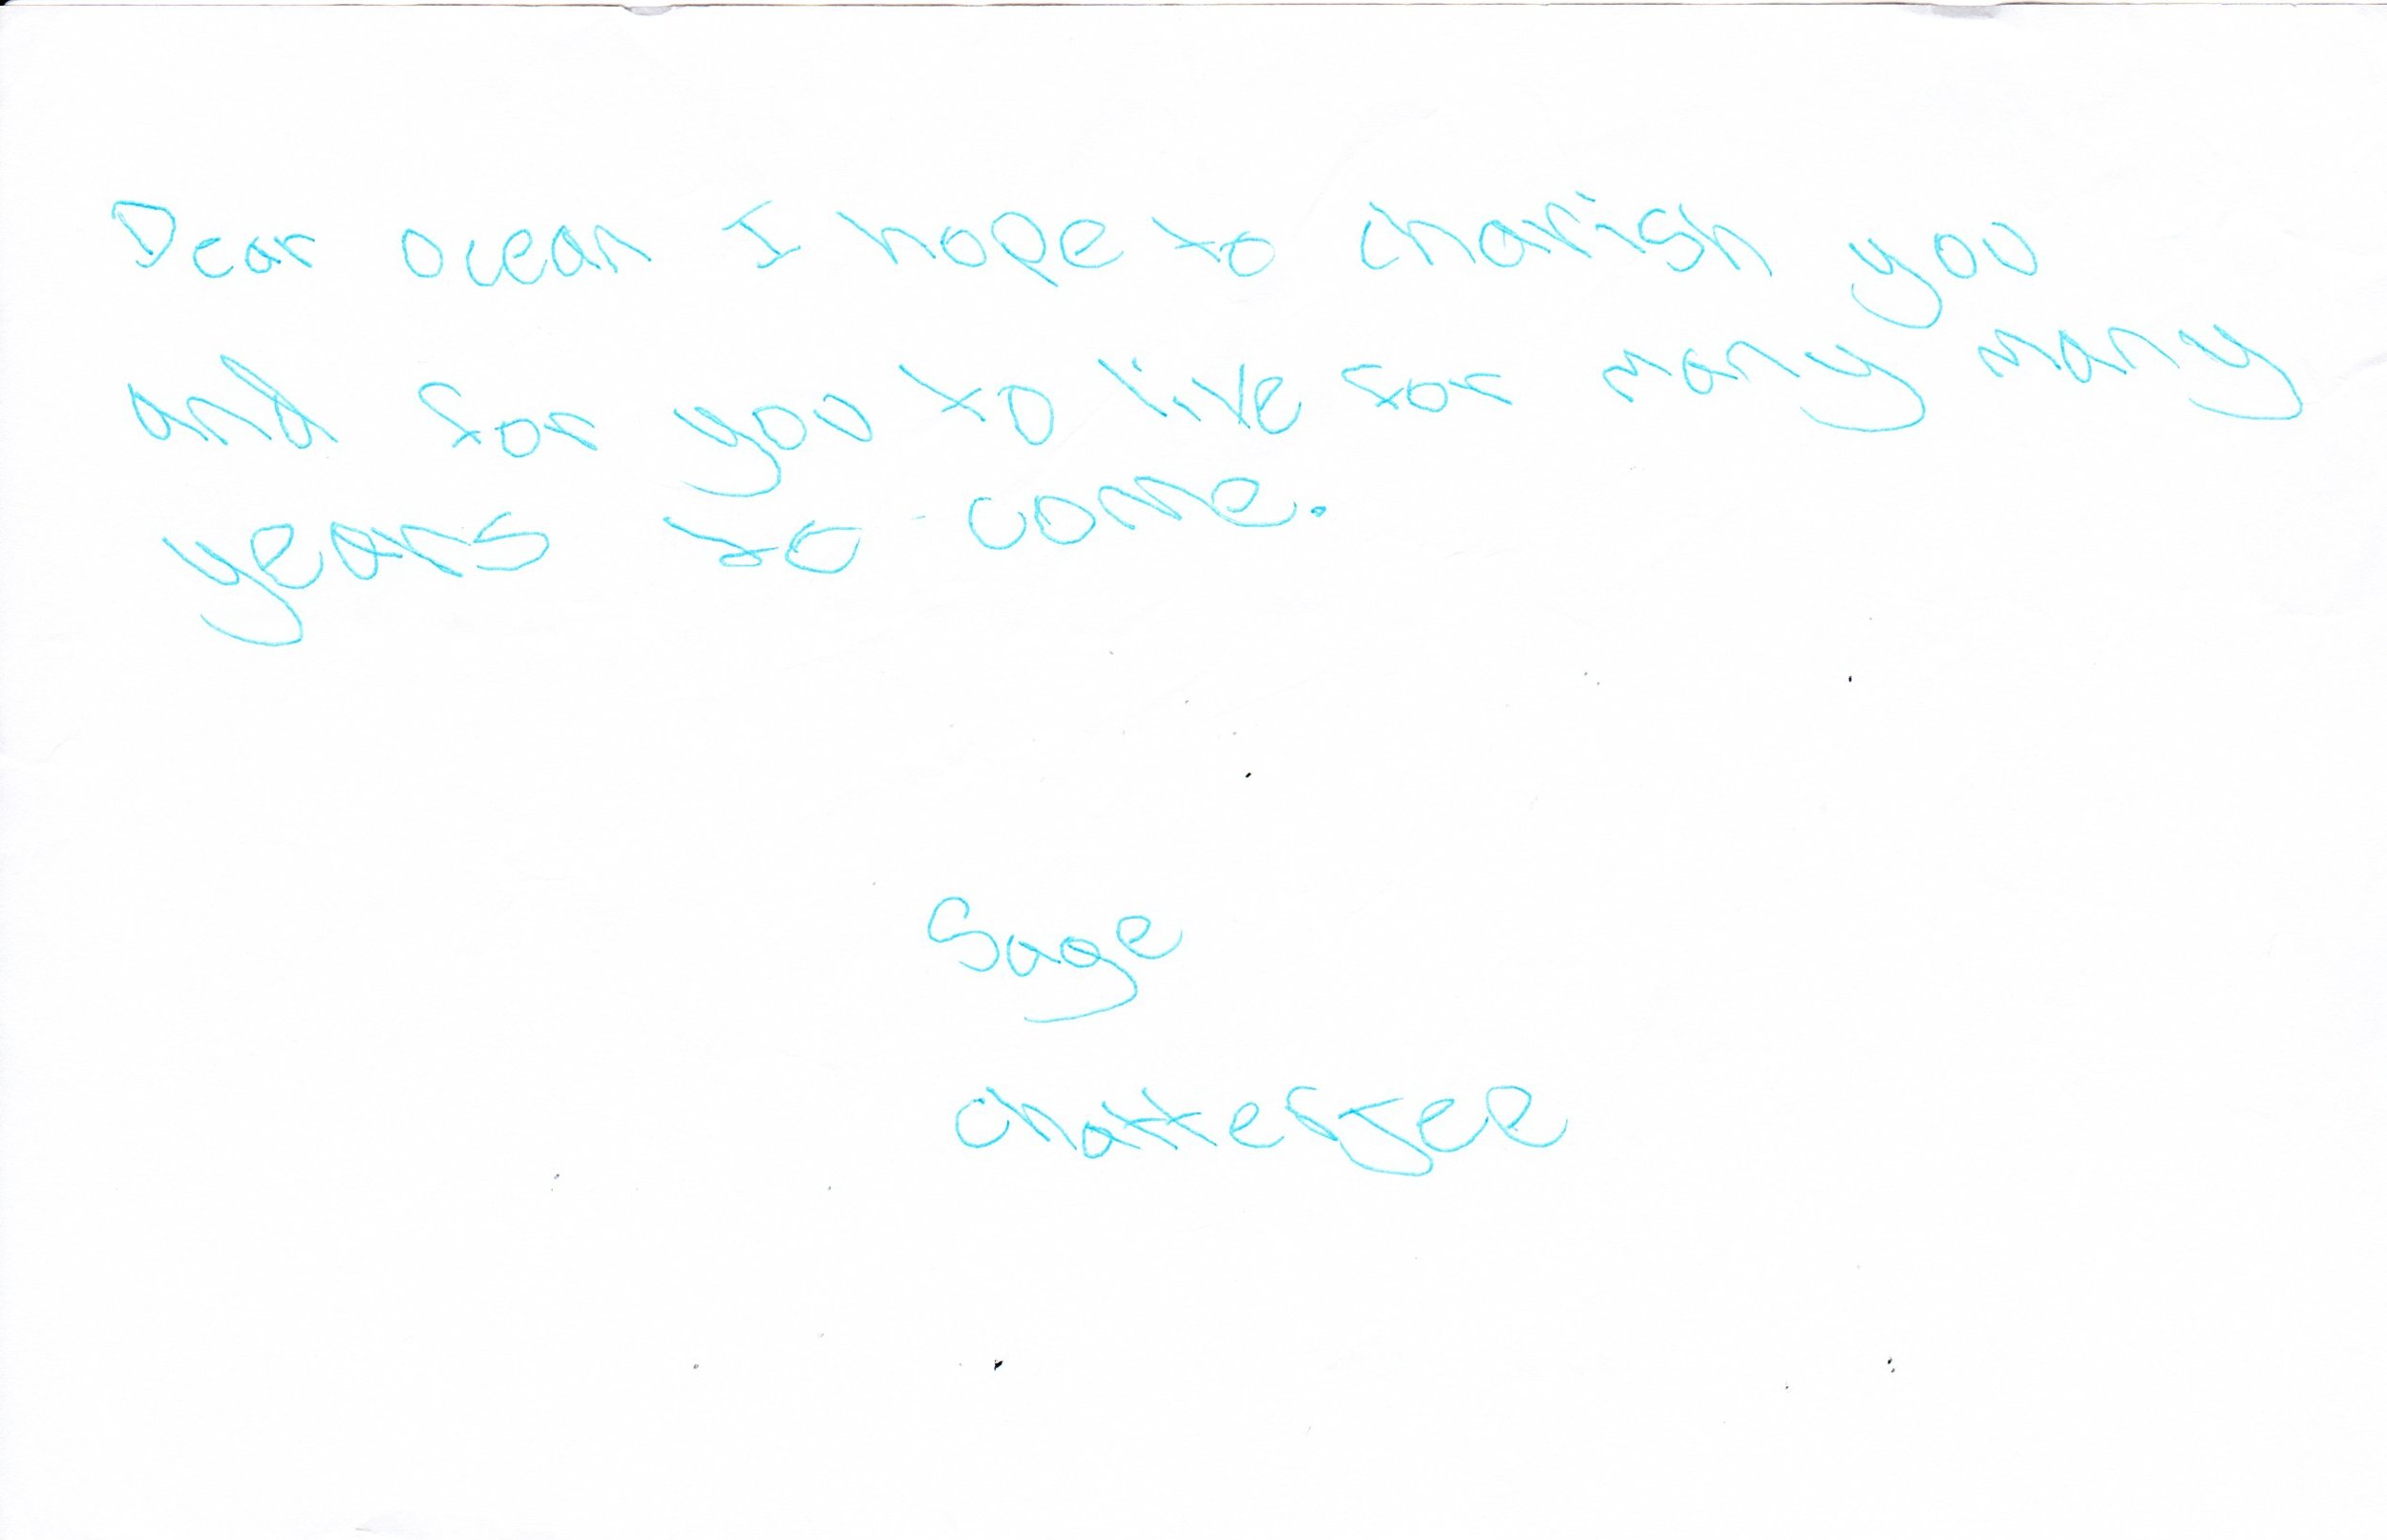 Dear ocean I hope to charish you
and for you to live for many many
years to come.
Sage
Chatterjee